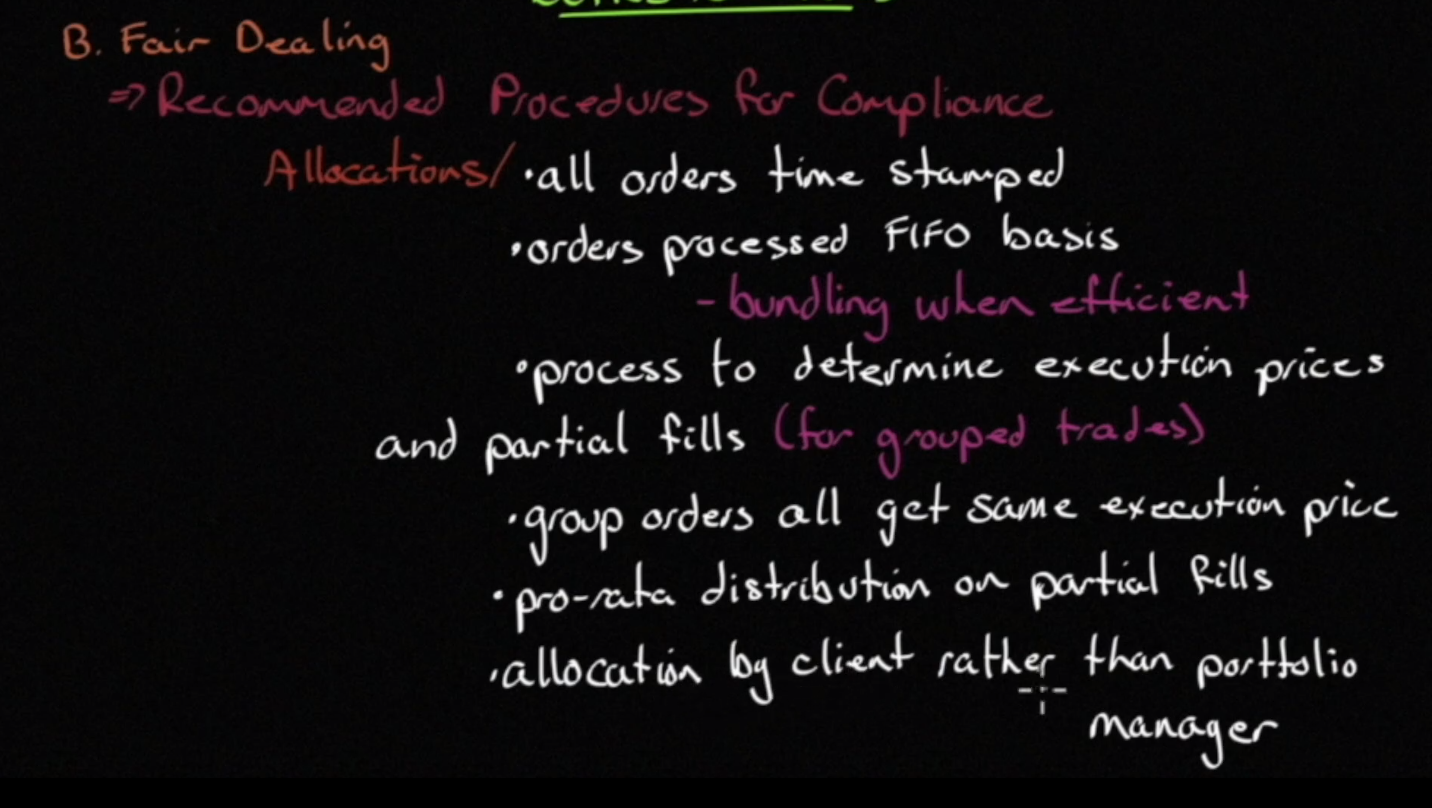 B. Fair Dealing
⇒ Recommended Procedures for Compliance
Allocations/ • all orders time stamped
• orders processed FIFO basis
- bundling when efficient
• process to determine execution prices
and partial fills (for grouped trades)
• group orders all get same execution price
• pro-rata distribution on partial fills
• allocation by client rather than portfolio
manager